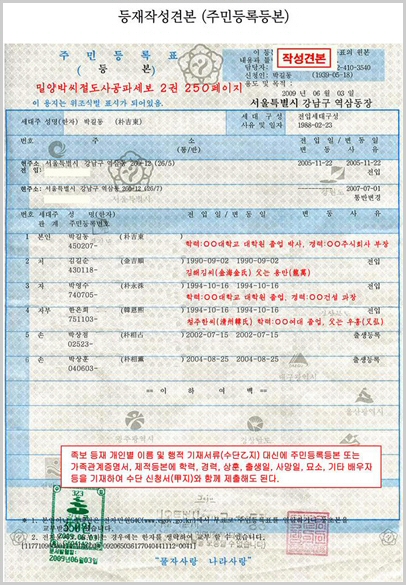 등재작성견본 (주민등록등본)
주 민 등 록 표
( 등 본 )
작성견본
밀양박씨절도사공파세보 2권 250페이지
이 용지는 위조식별 표시가 되어있음.
신청인: 박길동 (1939-05-18)
용도 및 목적:
2009 년 06 월 03 일
서울특별시 강남구 역삼동장
세대주 성명(한자) 박길동 (朴吉東)
세 대 구 성 사유 및 일자
전입세대구성 1988-02-23
번호 주 소 (통/반) 전 입 일 / 변 동 일 변 동 사 유
현주소 서울특별시 강남구 역삼동 2005-11-22 2005-11-22
전 입:
현주소 서울특별시 강남구 역삼동 2007-07-01
통반변경
번호 세대주 관계 성 명(한자) 주민등록번호 전 입 일 / 변 동 일 변 동 사 유
1 본인 박길동 (朴吉東)
450207-
학력:○○대학교 대학원 졸업 박사, 경력:○○주식회사 부장
2 처 김길순 (金吉順) 1990-09-02 1990-09-02 전입
430118-
김해김씨(金海金氏) 父는 용만(龍萬)
3 자 박영수 (朴永洙) 1994-10-16 1994-10-16 전입
740705-
학력:○○대학교 대학원 졸업, 경력:○○건설 과장
4 자부 한은희 (韓恩熙) 1994-10-16 1994-10-16 전입
751103-
청주한씨(淸州韓氏) 학력:○○여대 졸업, 父는 우홍(又弘)
5 손 박상점 (朴相占) 2002-07-15 2002-07-15 출생등록
02523-
6 손 박상훈 (朴相薰) 2004-08-25 2004-08-25 출생등록
040603-
== 이 하 여 백 ==
족보 등재 개인별 이름 및 행적 기재서류(수단乙지) 대신에 주민등록등본 또는
가족관계증명서, 제적등본에 학력, 경력, 상훈, 출생일, 사망일, 묘소, 기타 배우자
등을 기재하여 수단 신청서(甲지)와 함께 제출해도 된다.
2009년06월03일
"물자사랑 나라사랑"